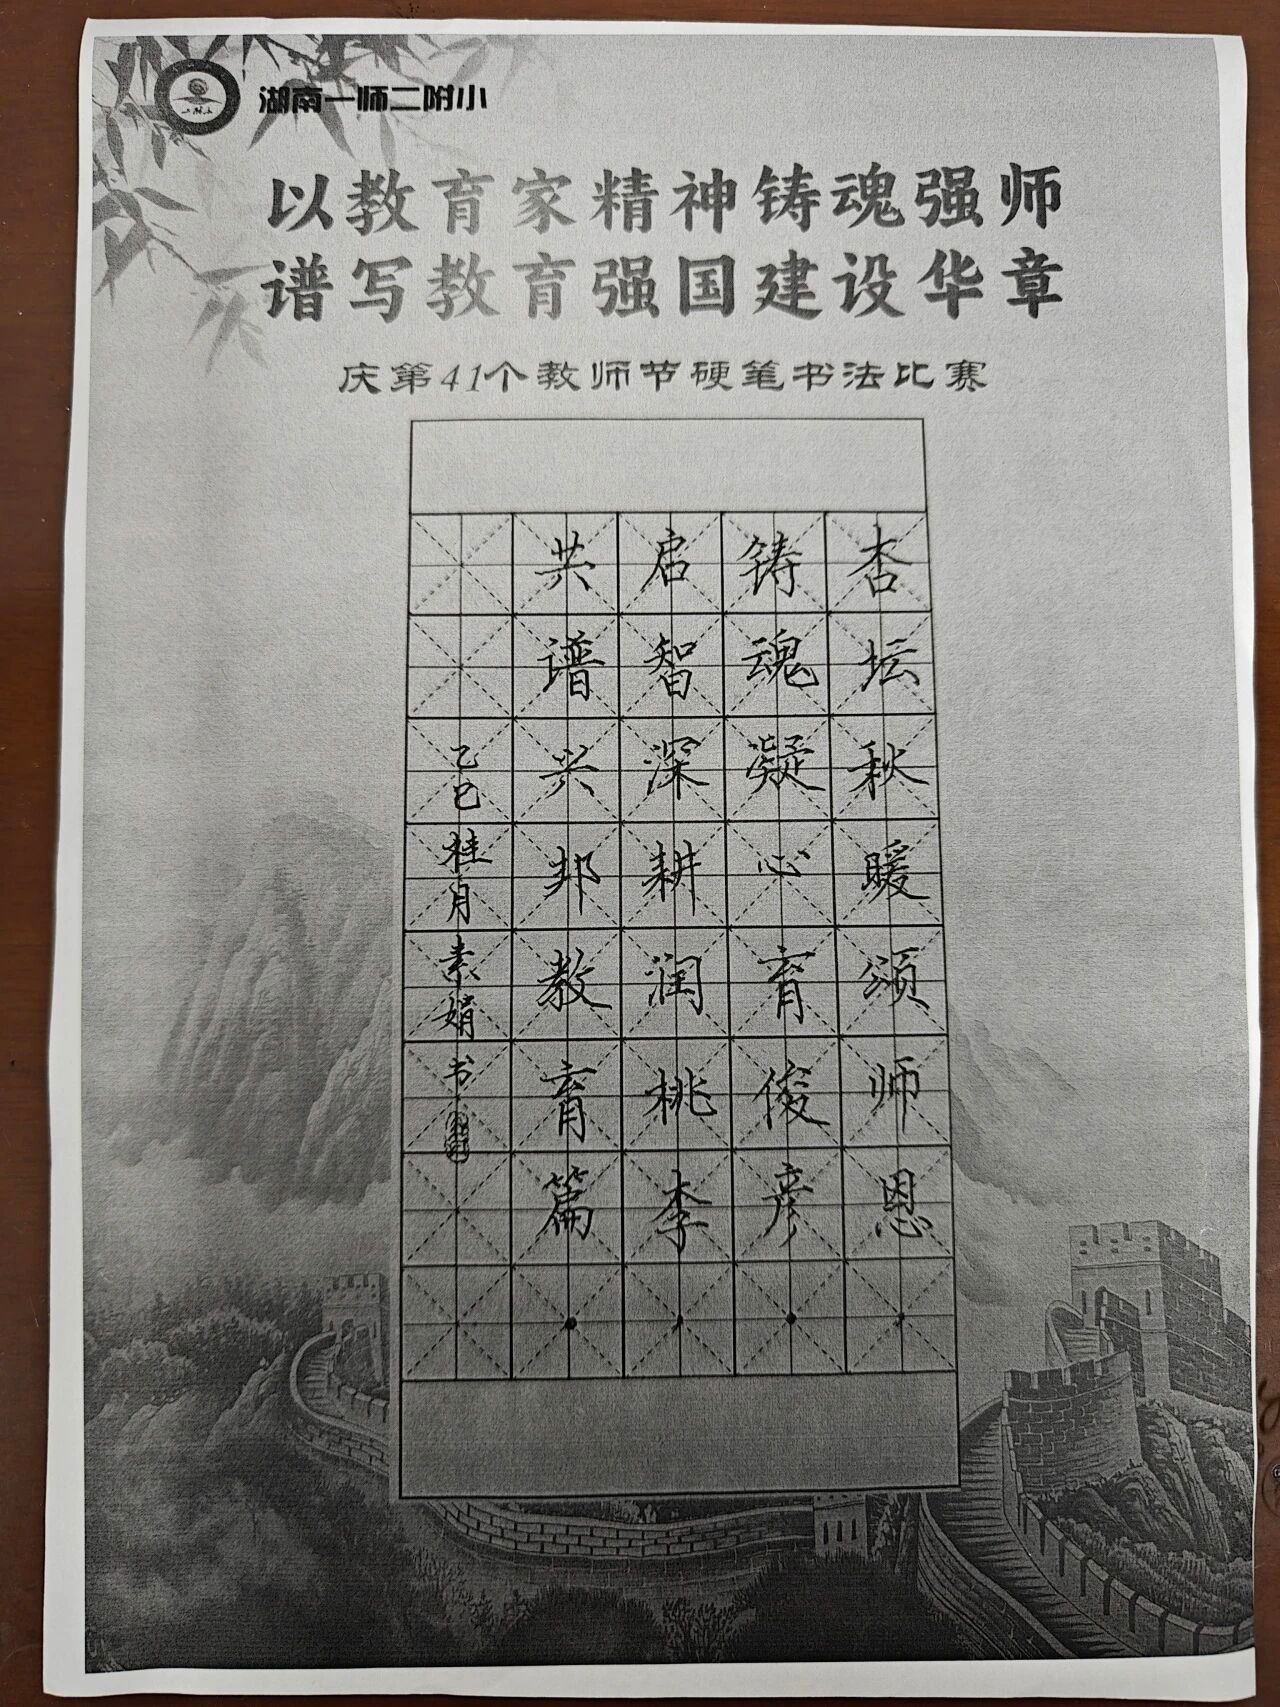 湖南一师二附小
以教育家精神铸魂强师
谱写教育强国建设华章
庆第41个教师节硬笔书法比赛
杏坛秋暖颂师恩
铸魂凝心育俊彦
启智深耕润桃李
共谱兴邦教育篇
乙巳桂月素娟书